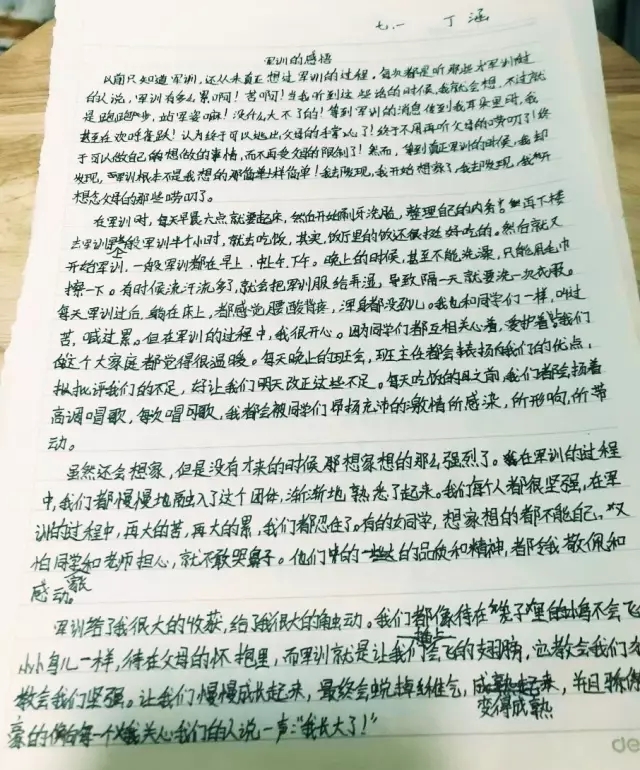 七.一 丁涵
军训的感悟
以前只知道军训,还从未真正想过军训的过程,每次都是听那些才军训过
的人说,军训有多么累啊!苦啊!当我听到这些话的时候,我就会想,不过就
是跑跑步,站军姿嘛!没什么大不了的!等到军训的消息传到我耳朵里时,我
甚至在欢呼雀跃!认为终于可以逃出父母的手掌心了!终于不用再听父母的唠叨了!终
于可以做自己的想做的事情,而不再受父母的限制了!然而,等到真正军训的时候,我却
发现,军训根本不是我想的那样简单!我去发现,我开始想家了,我去发现,我开
想念父母的那些唠叨了。
在军训时,每天早晨六点就要起床,然后开始刷牙洗脸,整理自己的内务。再下楼
去军训,早上一般军训半个小时,就去吃饭,其实,饭厅里的饭还很挺好吃的。然后就又
开始军训,一般军训都在早上.中上午.下午。晚上的时候,甚至不能洗澡,只能用毛巾
擦一下。有时候流汗流多了,就会把军训服给弄湿,导致隔一天就要洗一次衣服。
每天军训过后,躺在床上,都感觉腰酸背疼,浑身都没劲儿。我也和同学们一样,叫过
苦,喊过累。但在军训的过程中,我很开心。因为同学们都互相关心着,爱护着,我们
做这个大家庭都觉得很温暖。每天晚上的班会,班主任都会表扬我们的优点,
批评我们的不足,好让我们明天改正这些不足。每天吃饭的之前,我们都会扬着
高调唱歌,每次唱歌,我都会被同学们昂扬充沛的激情所感染,所影响,所带
动。
虽然还会想家,但是没有才来的时候那想家想的那么强烈了。在军训的过程
中,我们都慢慢地融入了这个团体,渐渐地熟悉了起来。我们每个人都很坚强,在军
训的过程中,再大的苦,再大的累,我们都忍住了。有的女同学,想家想的都不能自已,又
怕同学和老师担心,就不敢哭鼻子。他们的品质和精神,都令我敬佩和
感动。
军训给了我很大的收获,给了我很大的触动。我们都像待在"笼子"里的鸟不会飞
小小鸟儿一样,待在父母的怀抱里,而军训就是让我们插上会飞的翅膀,也教会我们
教会我们坚强。让我们慢慢成长起来,最终会蜕掉稚气,变得成熟,并且骄傲
豪的向每一个关心我们的人说一声:"我长大了!"